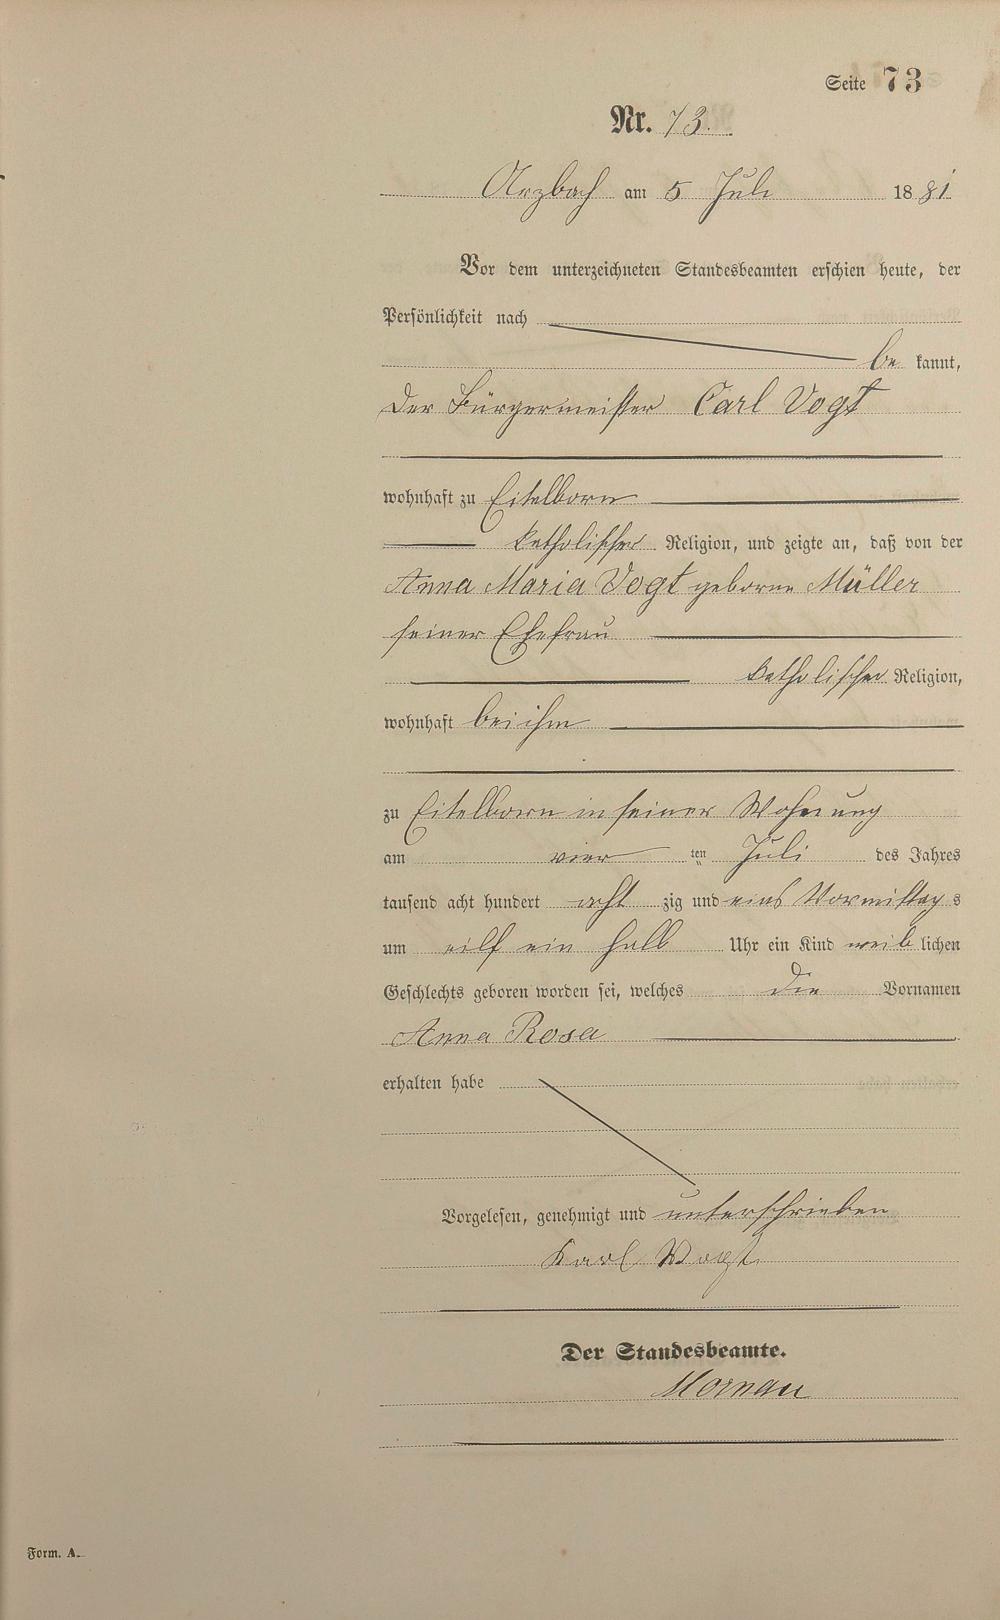 Seite 73
Nr. 73.
Arzbach am 5 Juli 1881
Vor dem unterzeichneten Standesbeamten erschien heute, der
Persönlichkeit nach
be kannt,
der Bürgermeister Carl Vogt
wohnhaft zu Eitelborn
katholischer Religion, und zeigte an, daß von der
Anna Maria Vogt geborne Müller
seiner Ehefrau
katholischer Religion,
wohnhaft bei ihm
zu Eitelborn in seiner Wohnung
am vier ten Juli des Jahres
tausend acht hundert acht zig und eins Vormittag s
um eilf ein halb Uhr ein Kind weib lichen
Geschlechts geboren worden sei, welches die Vornamen
Anna Rosa
erhalten habe
Vorgelesen, genehmigt und unterschrieben
Karl Vogt
Der Standesbeamte.
Mornau
Form. A.